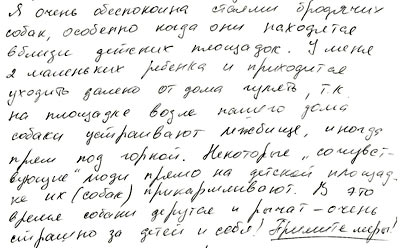 Я очень обеспокоена стаями бродячих
собак, особенно когда они находятся
вблизи детских площадок. У меня
2 маленьких ребенка и приходится
уходить далеко от дома гулять, т.к.
на площадке возле нашего дома
собаки устраивают лежбище, иногда
прям под горкой. Некоторые „сочувст-
вующие" люди прямо на детской площад-
ке их (собак) прикармливают. В это
время собаки дерутся и рычат – очень
страшно за детей и себя! Примите меры!